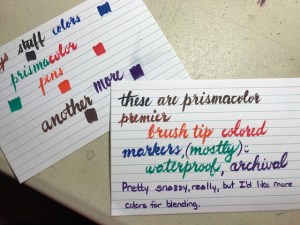 stuff colors
prismacolor
pens
another more
these are prismacolor
premier
brush tip colored
markers, (mostly)
waterproof, archival
Pretty snazzy, really, but I'd like more
colors for blending.